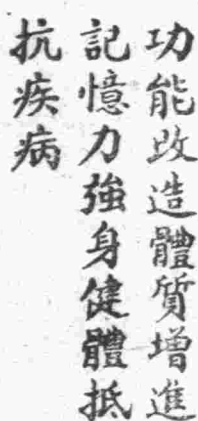 功能改造體質增進
記憶力強身健體抵
抗疾病